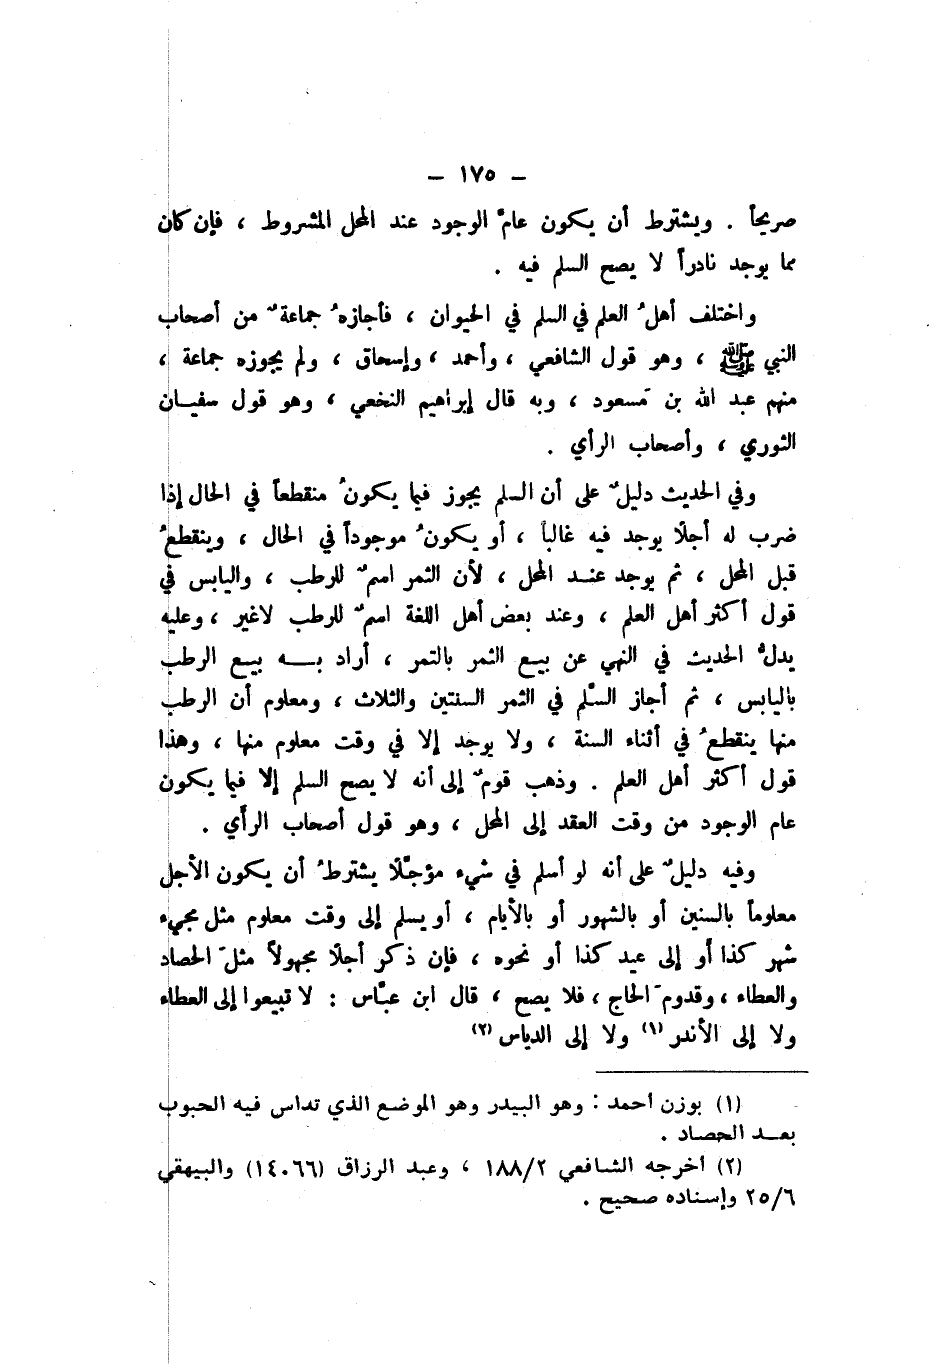 – ١٧٥ –
صريحاً . ويشترط أن يكون عامَّ الوجود عند المحل المشروط ، فإن كان
مما يوجد نادراً لا يصح السلم فيه .
واختلف أهلُ العلم في السلم في الحيوان ، فأجازهُ جماعةٌ من أصحاب
النبي ﷺ ، وهو قول الشافعي ، وأحمد ، وإسحاق ، ولم يجوزه جماعة ،
منهم عبد الله بن مَسعود ، وبه قال إبراهيم النخعي ، وهو قول سفيـان
الثوري ، وأصحاب الرأي .
وفي الحديث دليلٌ على أن السلم يجوز فيما يكونُ منقطعاً في الحال إذا
ضرب له أجلًا يوجد فيه غالباً ، أو يكونُ موجوداً في الحال ، وينقطعُ
قبل المحل ، ثم يوجد عنـد المحل ، لأن الثمر اسمٌ للرطب ، واليابس في
قول أكثر أهل العلم ، وعند بعض أهل اللغة اسمٌ للرطب لاغير ، وعليه
يدلُّ الحديث في النهي عن بيع الثمر بالتمر ، أراد بـه بيع الرطب
باليابس ، ثم أجاز السَّلم في الثمر السنتين والثلاث ، ومعلوم أن الرطب
منها ينقطعُ في أثناء السنة ، ولا يوجد إلا في وقت معلوم منها ، وهذا
قول أكثر أهل العلم . وذهب قومٌ إلى أنه لا يصح السلم إلا فيما يكون
عام الوجود من وقت العقد إلى المحل ، وهو قول أصحاب الرأي .
وفيه دليلٌ على أنه لو أسلم في شيء مؤجَّلًا يشترطُ أن يكون الأجل
معلوماً بالسنين أو بالشهور أو بالأيام ، أو يسلم إلى وقت معلوم مثل مجيء
شهر كذا أو إلى عيد كذا أو نحوه ، فإن ذكر أجلًا مجهولاً مثلَ الحصاد
والعطاء ، وقدومَ الحاج ، فلا يصح ، قال ابن عبَّاس : لا تبيعوا إلى العطاء
ولا إلى الأندر (١) ولا إلى الدياس (٢)
(١) بوزن أحمد : وهو البيدر وهو الموضع الذي تداس فيه الحبوب
بعـد الحصاد .
(٢) أخرجه الشافعي ١٨٨/٢ ، وعبد الرزاق (١٤٠٦٦) والبيهقي
٢٥/٦ وإسناده صحيح .